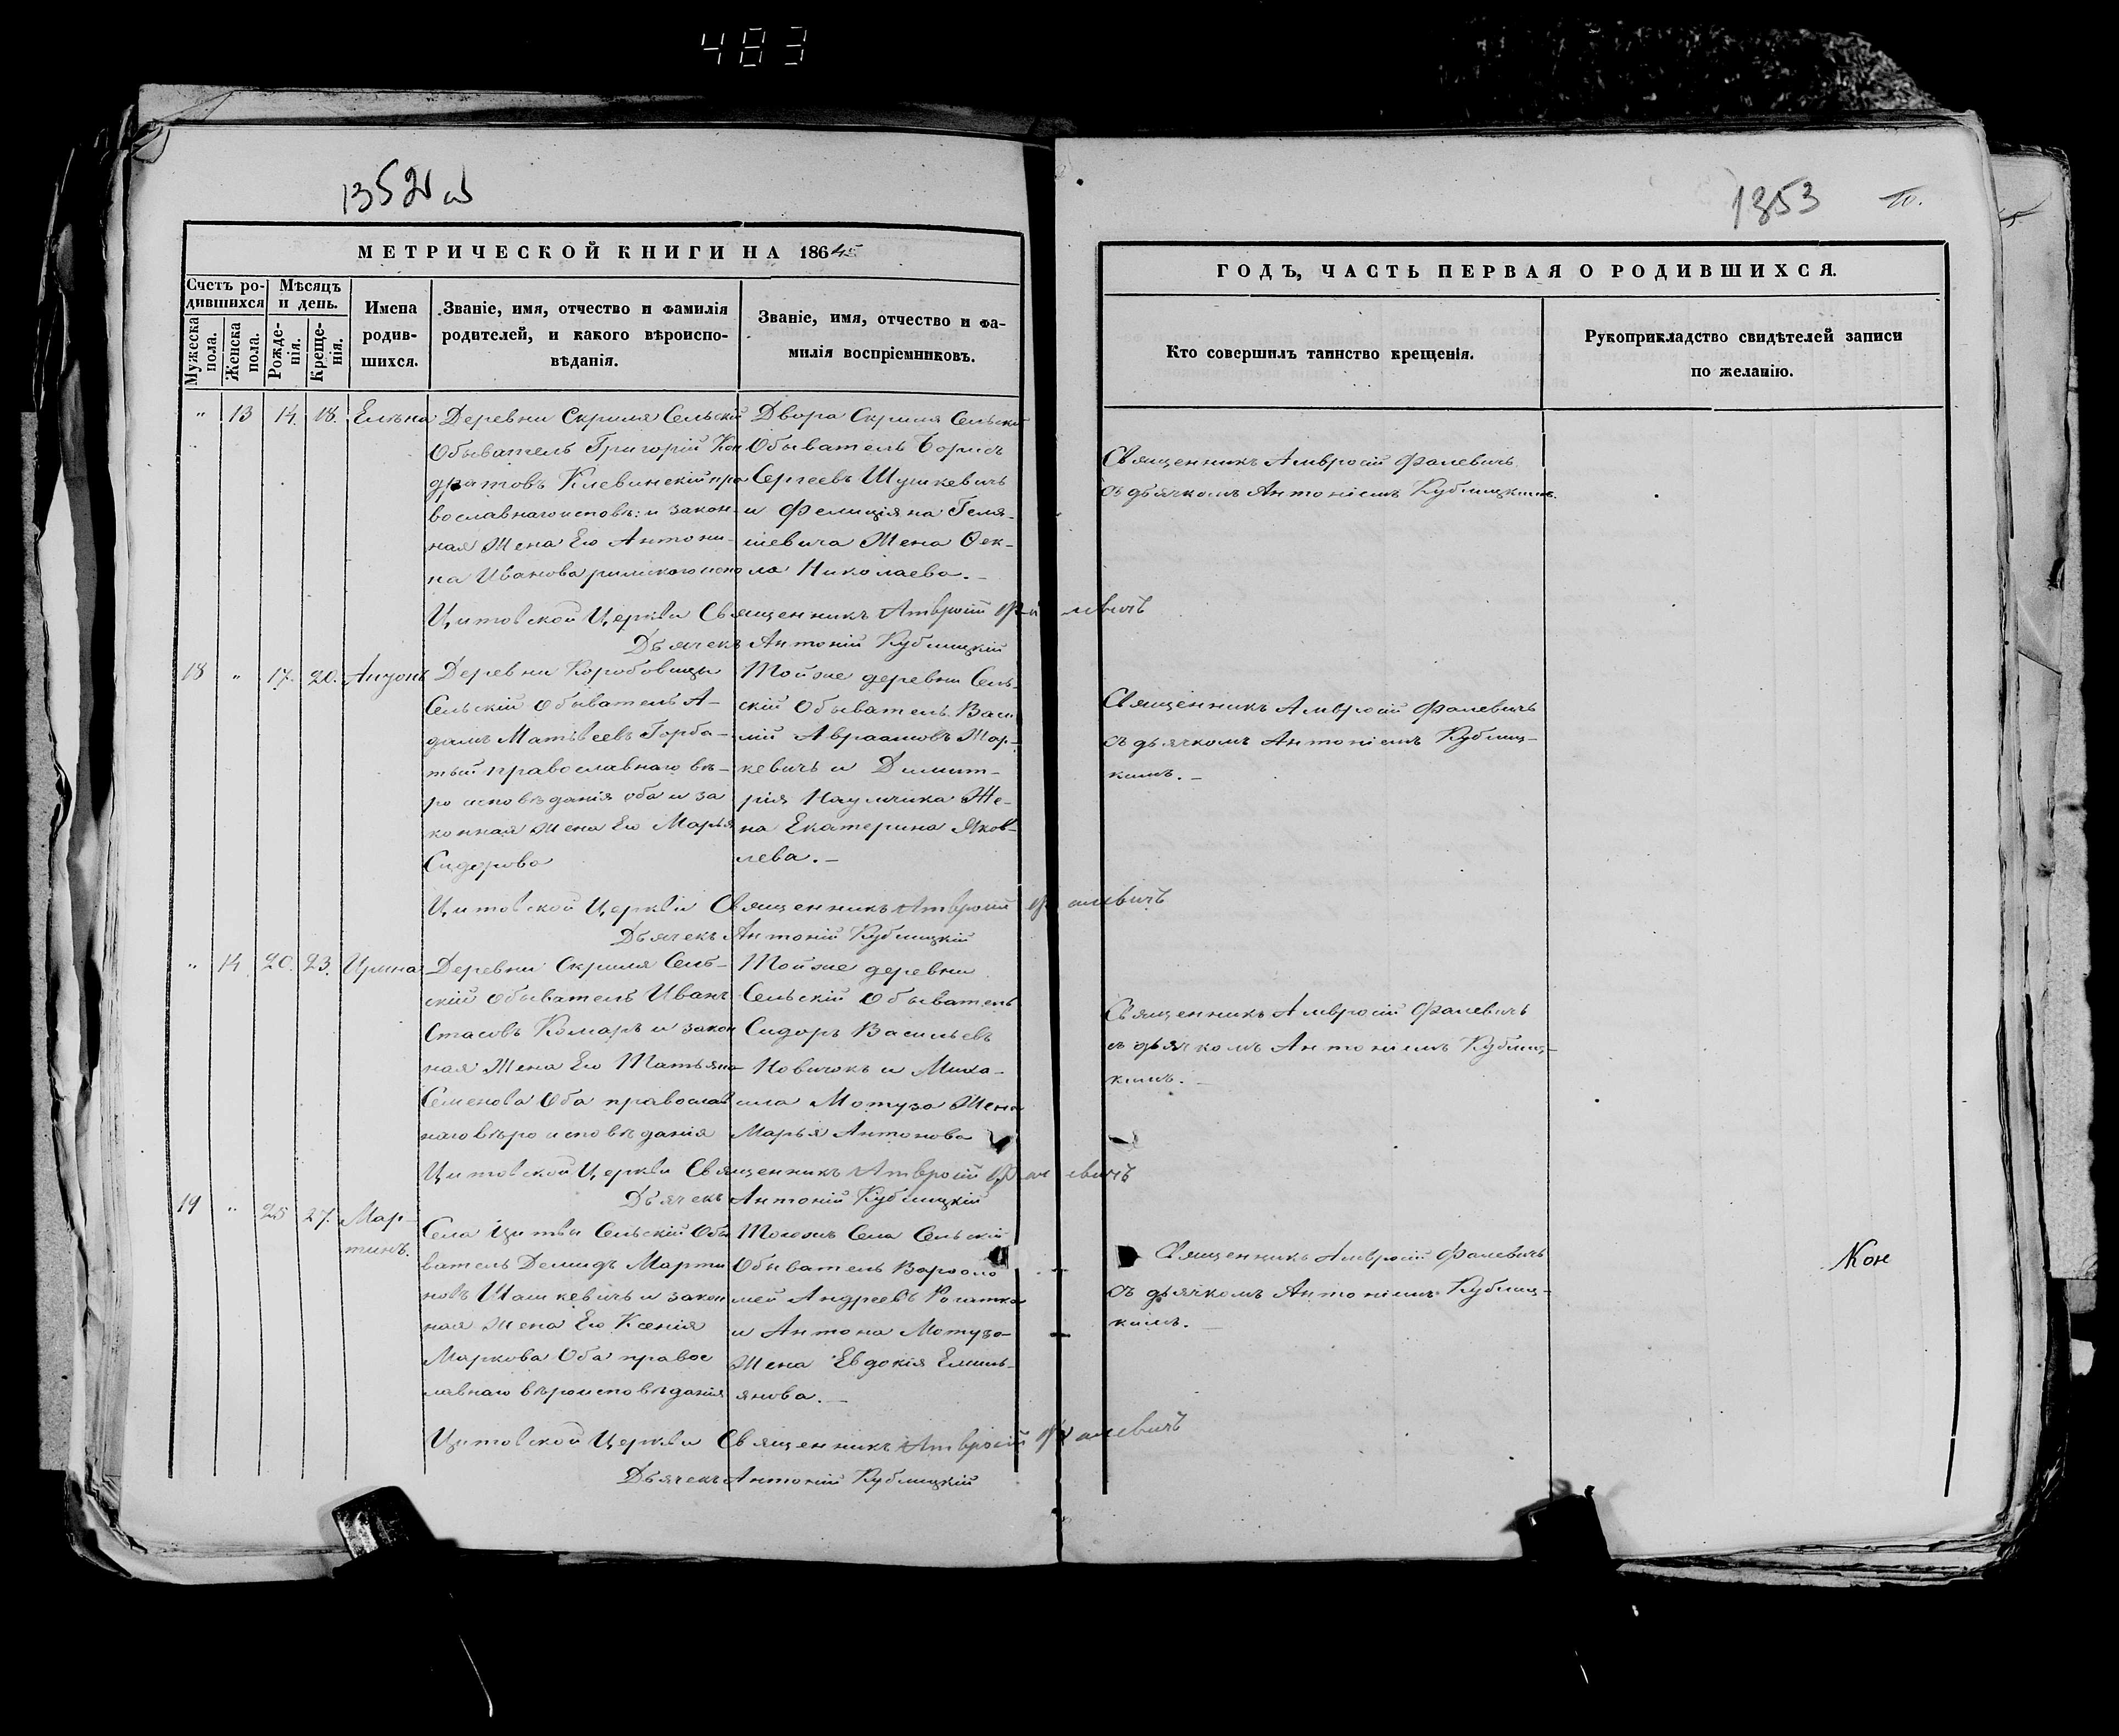 483
1352 об
1353
10.
МЕТРИЧЕСКОЙ КНИГИ НА 1864
ГОДЪ, ЧАСТЬ ПЕРВАЯ О РОДИВШИХСЯ.
Счетъ родившихся
Мужеска пола.
Женска пола.
Мѣсяцъ и день.
Рожденія.
Крещенія.
Имена родившихся.
Званіе, имя, отчество и фамилія
родителей, и какого вѣроиспо-
вѣданія.
Званіе, имя, отчество и фа-
милія воспріемниковъ.
Кто совершилъ таинство крещенія.
Рукоприкладство свидѣтелей записи
по желанію.
" 13 14. 18. Елена
Деревни Скриля Сельскій
Обыватель Григорій Кон
дратовъ Клевинскій пра
вославнаго исповѣ: и закон-
ная Жена Его Антони-
на Иванова римского испо
Двора Скриля Сельскій
Обыватель Борисъ
Сергеевъ Шушкевичъ
и Фелиціяна
шевича Жена Өек-
ла Николаева. –
Священникъ Амвросій Фалевичъ
съ дьячкомъ Антоніемъ Кублицкимъ.
Цитовской Церкви Священникъ Амвросій Фалевичъ
Дьячекъ Антоній Кублицкій
18 " 17. 20.
Деревни Коробовцы
Сельскій Обыватель А-
дамъ Матвѣевъ Горба-
тый православнаго вѣ-
ро исповѣданія оба и за
конная жена Его Марья
Сидорова
Тойже деревни Сель-
скій Обыватель Васи
лій Авраамовъ
кевичъ и Димит-
рія Наумчика Же-
на Екатерина Яков-
лева. –
Священникъ Амвросій Фалевичъ
съ дьячкомъ Антоніемъ Кублиц-
кимъ. –
Цитовской Церкви Священникъ Амвросій Фалевичъ
Дьячекъ Антоній Кублицкій
" 14 20. 23. Ирина
Деревни Скриля Сель-
скій обыватель Иванъ
Стасовъ Комаръ и закон
ная Жена Его Татьяна
Семенова Оба православ
наго вѣро исповѣданія
Тойже деревни
Сельскій Обыватель
Сидоръ Васильевъ
Новичокъ и Миха-
ила Мотуза Жена
Марья Антонова
Священникъ Амвросій Фалевичъ
съ дьячкомъ Антоніемъ Кублиц-
кимъ. –
Цитовской Церкви Священникъ Амвросій Фалевичъ
Дьячекъ Антоній Кублицкій
19 " 25 27. Мар-
тинъ.
Села Цитвы Сельскій Обы
ватель Демидъ Марти
новъ Шашкевичъ и закон
ная жена Его Ксенія
Маркова Оба правос
лавнаго вѣроисповѣданія
Тогожъ Села Сельскій
Обыватель Варѳоло
мей Андреевъ Рогатко
и Антона Мотузо-
Жена Евдокія Емиль-
янова. –
Священникъ Амвросій Фалевичъ
съ дьячкомъ Антоніемъ Кублиц-
кимъ. –
Кон
Цитовской Церкви Священникъ Амвросій Фалевичъ
Дьячекъ Антоній Кублицкій